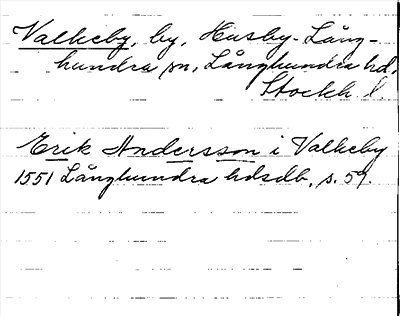 Valkeby, by, Husby-Lång-
hundra sn, Långhundra hd,
Stockh. l.
Erik Andersson i Valkeby
1551 Långhundra hdsdb, s. 59.